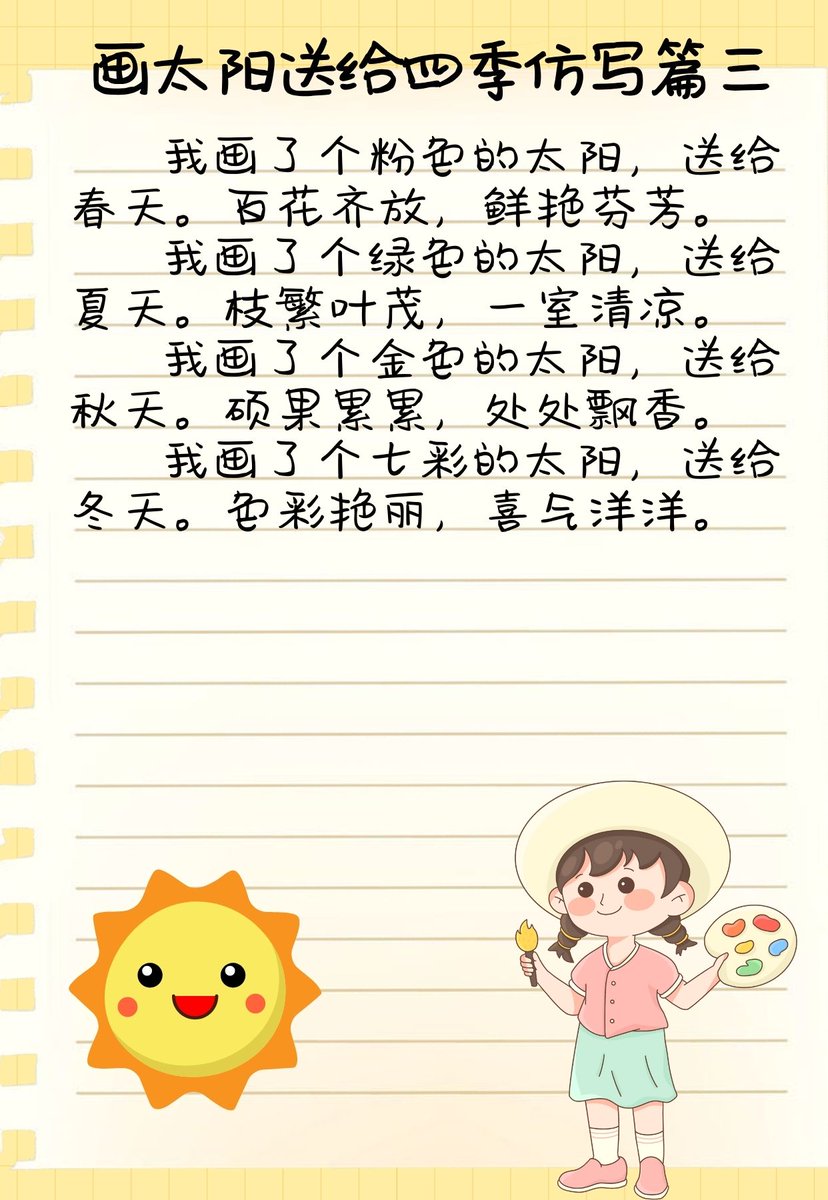 画太阳送给四季仿写篇三
我画了个粉色的太阳，送给
春天。百花齐放，鲜艳芬芳。
我画了个绿色的太阳，送给
夏天。枝繁叶茂，一室清凉。
我画了个金色的太阳，送给
秋天。硕果累累，处处飘香。
我画了个七彩的太阳，送给
冬天。色彩艳丽，喜气洋洋。